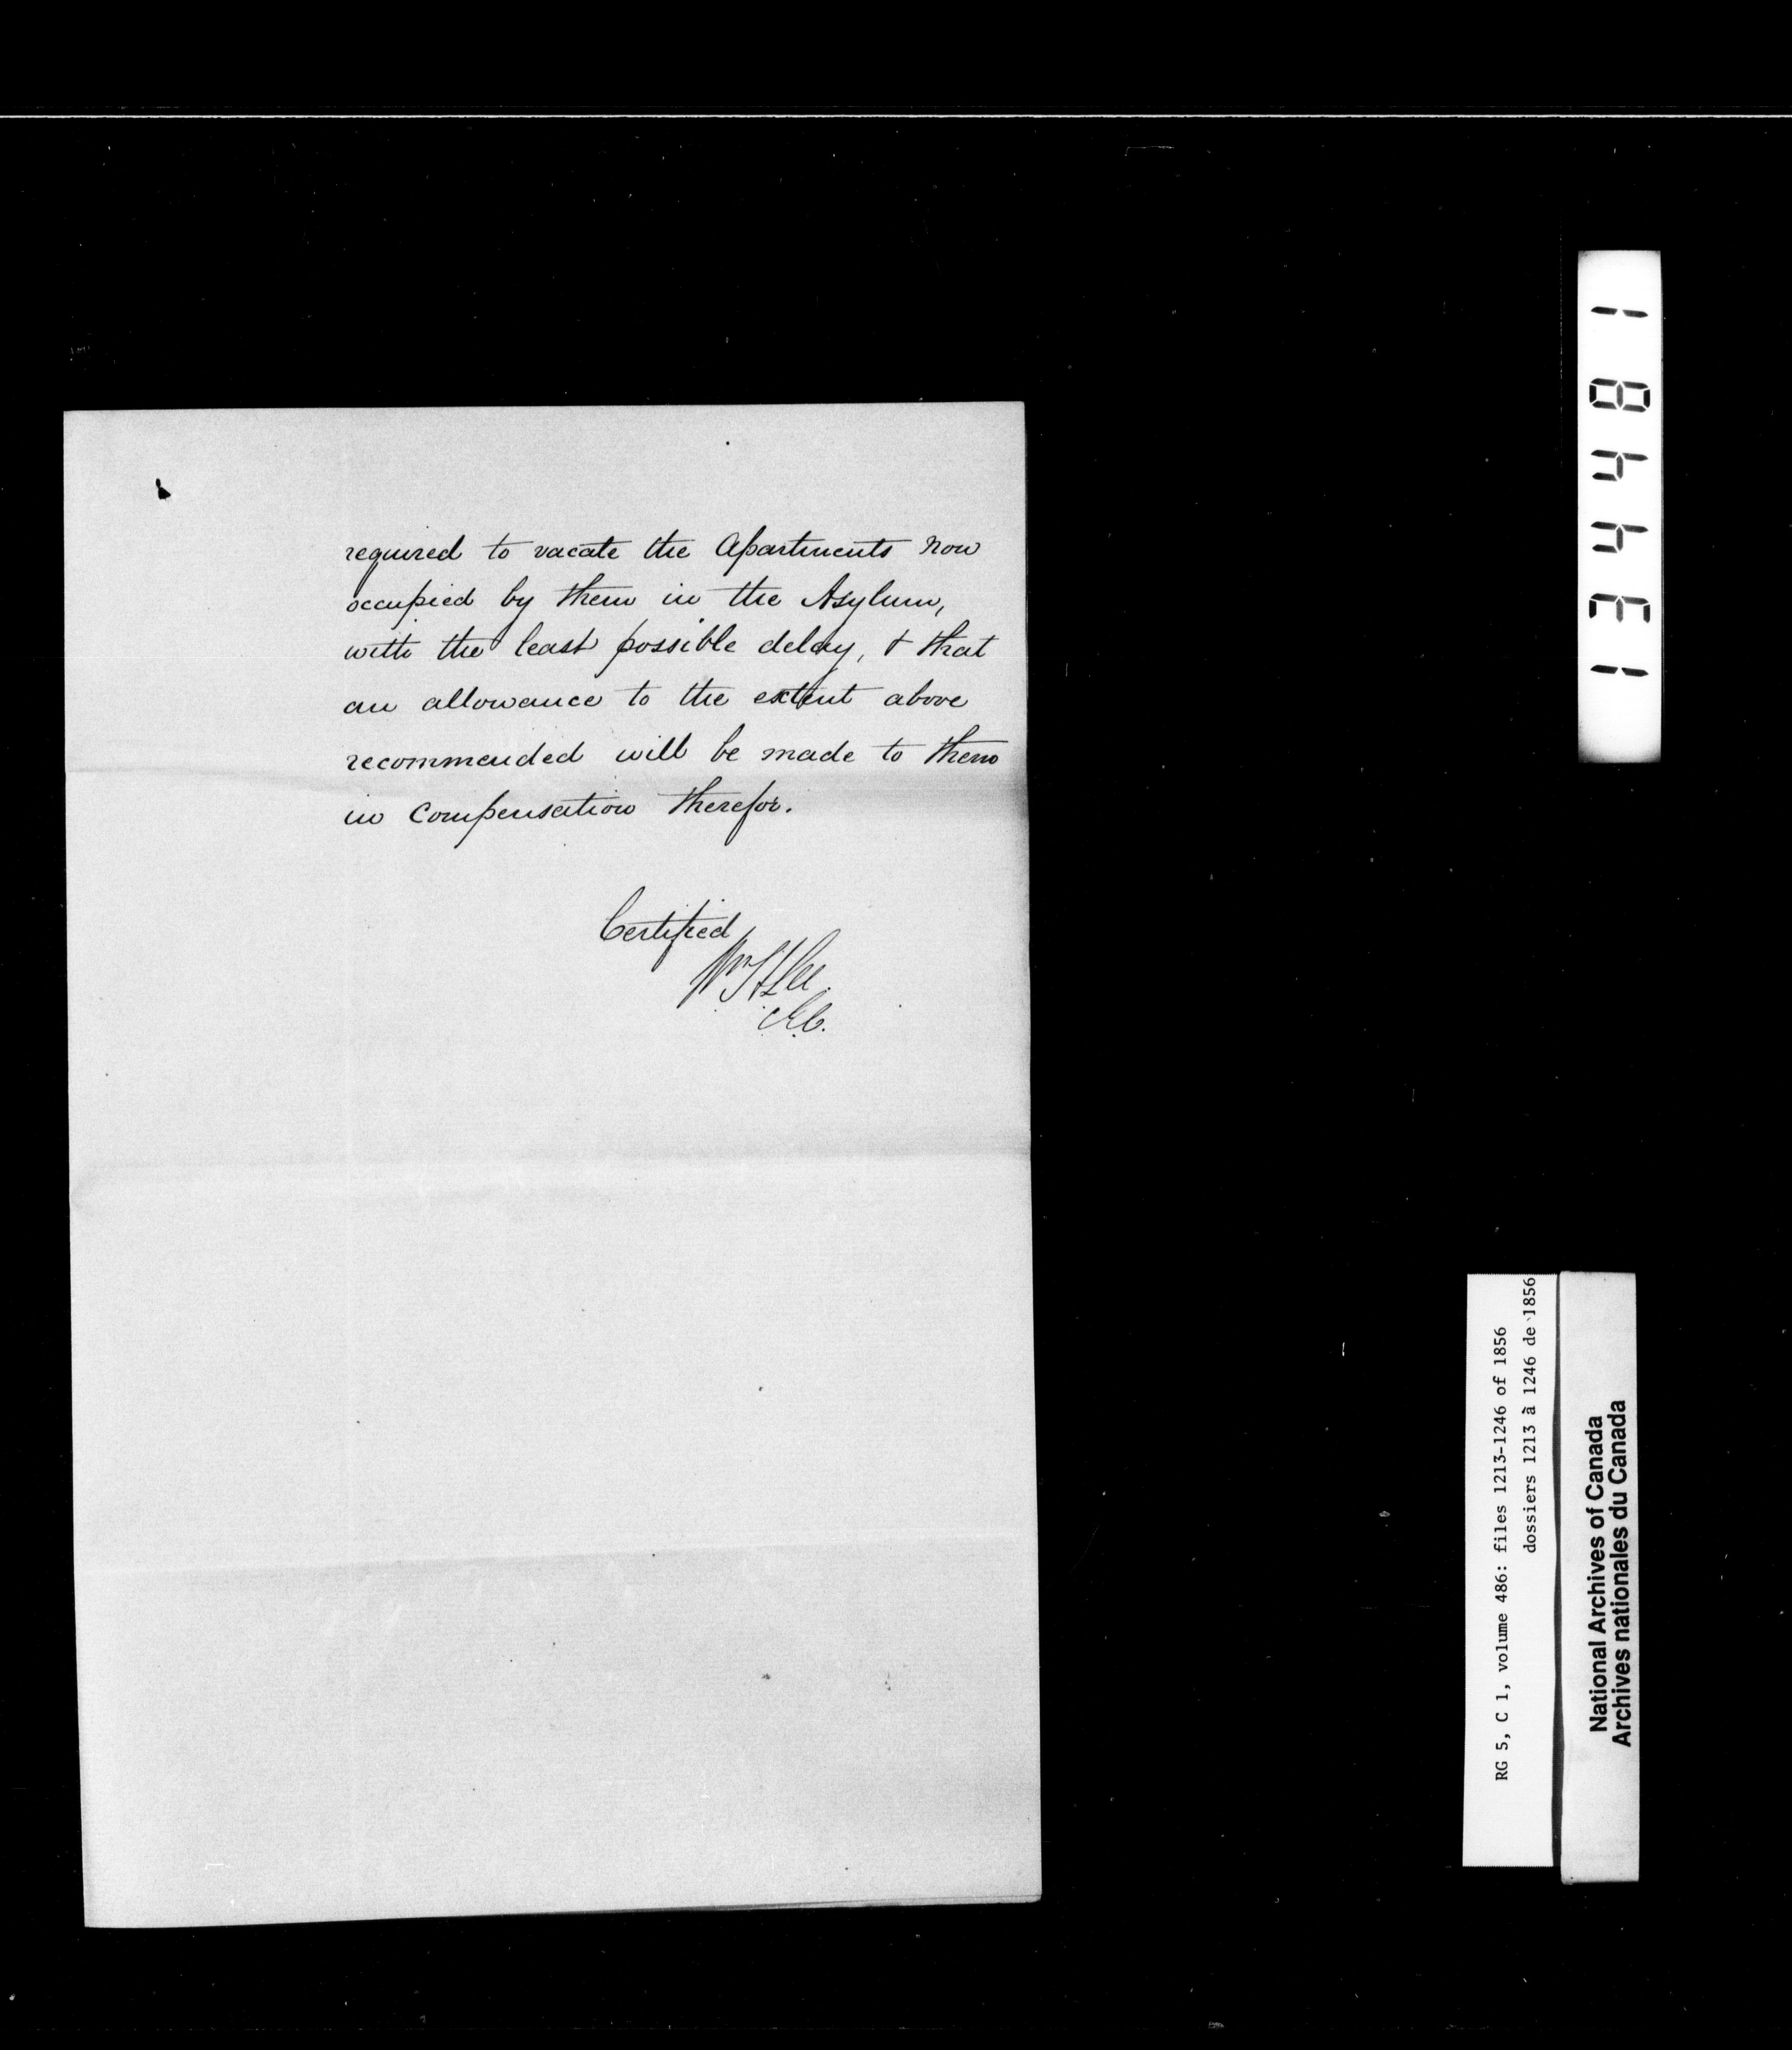 required to vacate the Apartments now
occupied by them in the Asylum,
with the least possible delay, & that
an allowance to the extent above
recommended will be made to them
in Compensation therefor.
Certified
Wm H Lee
C.E.C.
134481
RG 5, C 1, volume 486: files 1213-1246 of 1856
dossiers 1213 à 1246 de 1856
National Archives of Canada
Archives nationales du Canada